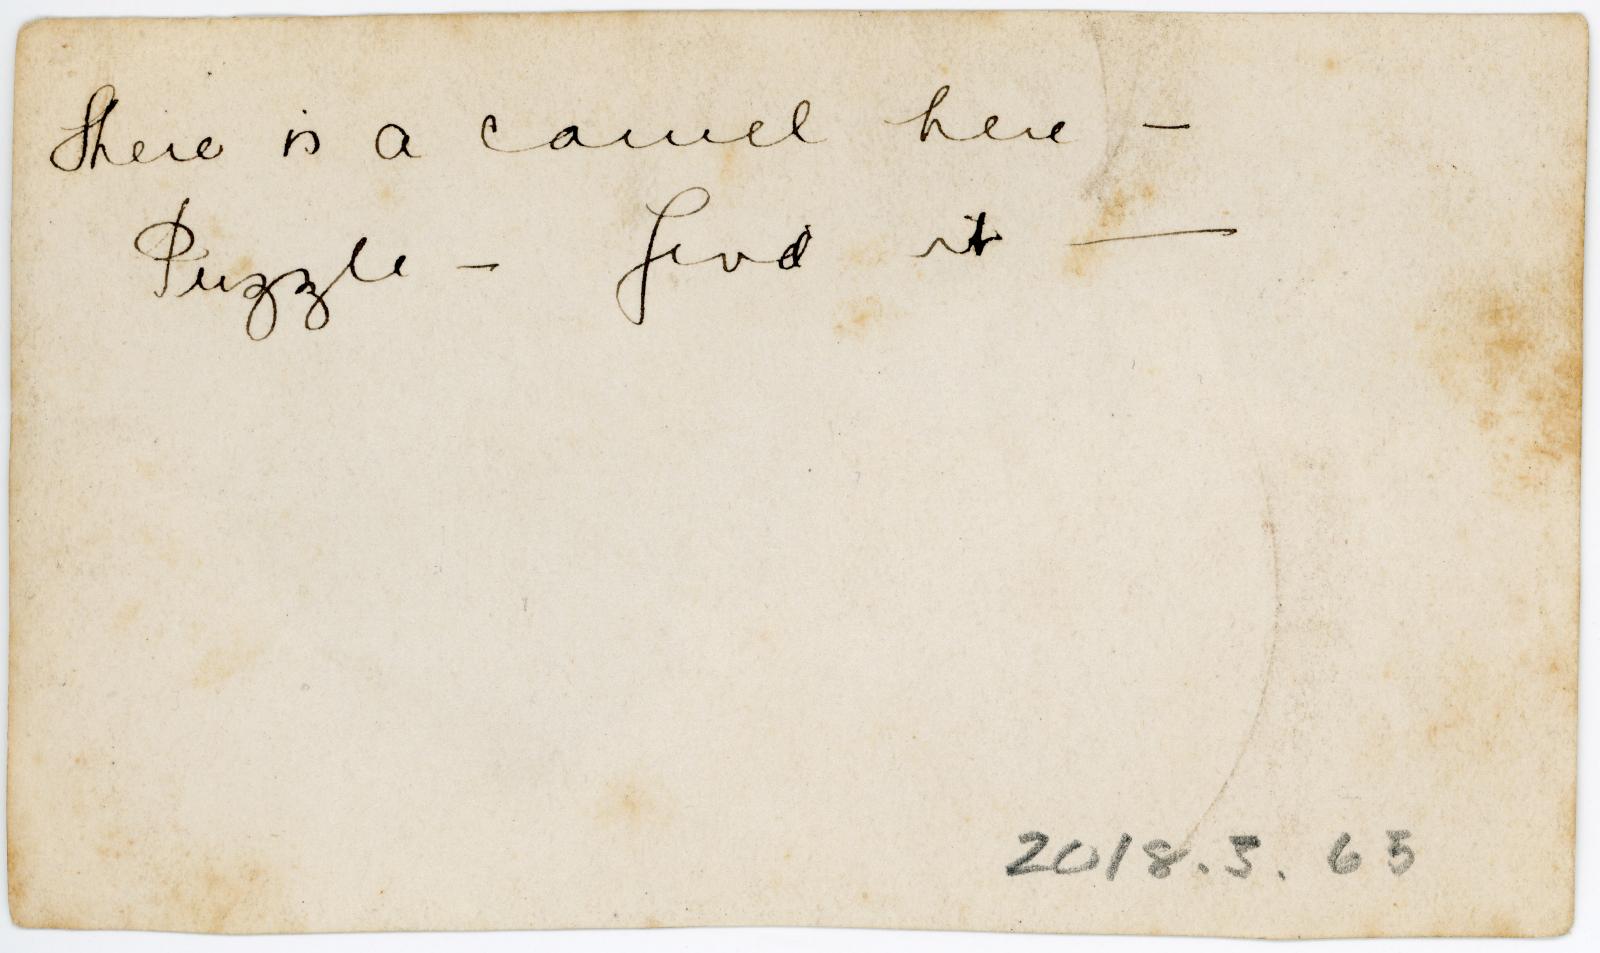 There is a camel here —
Puzzle — Find it —
2018.3.63